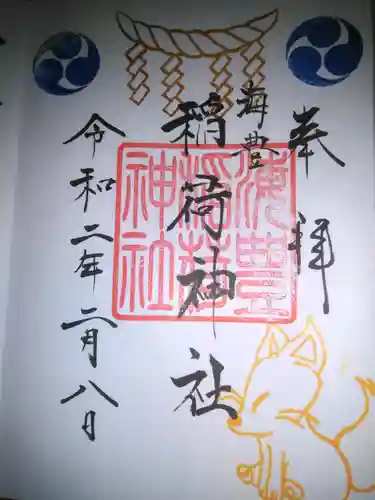 奉拝
海豊
稲荷神社
令和二年二月八日
海豊稲荷神社